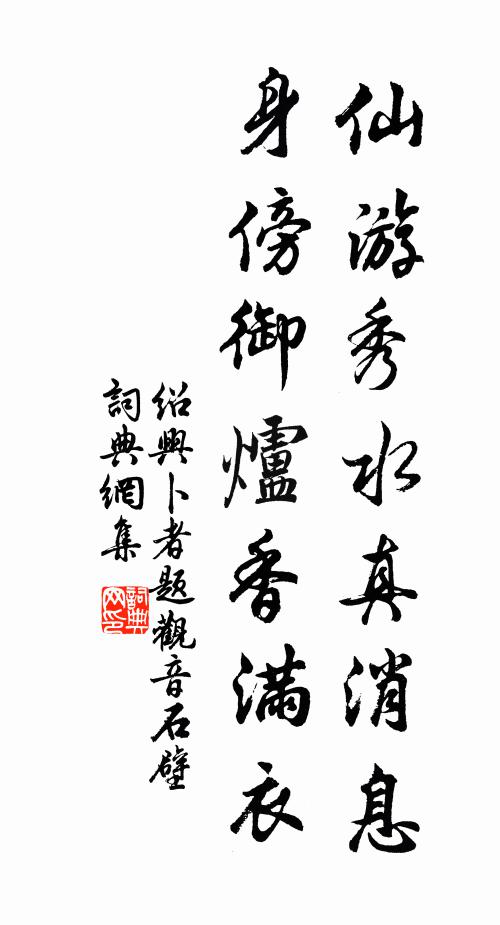 仙游秀水真消息
身傍御爐香滿衣
紹興卜者題觀音石壁
詞典網集
詞典网印